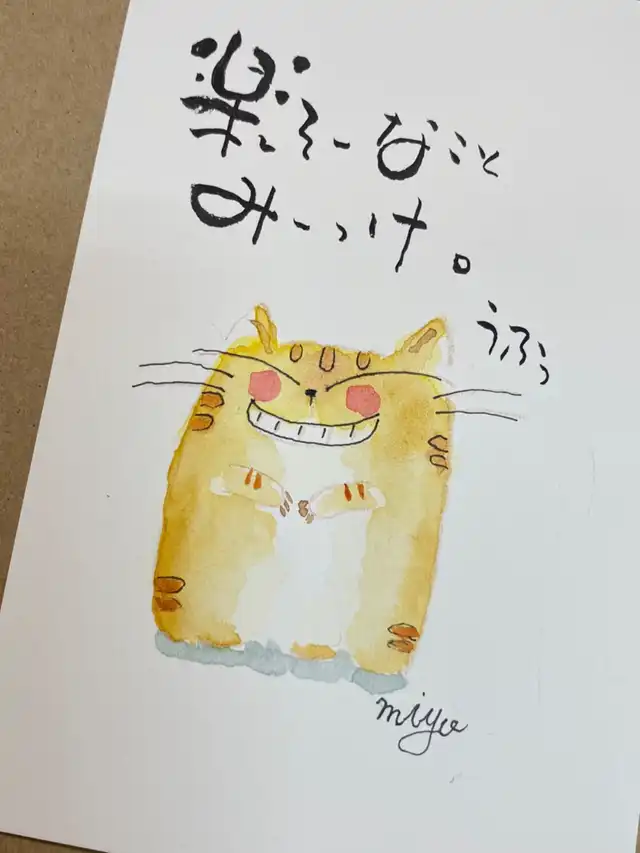 楽しそーなこと
みーっけ。
うふっ
miyu